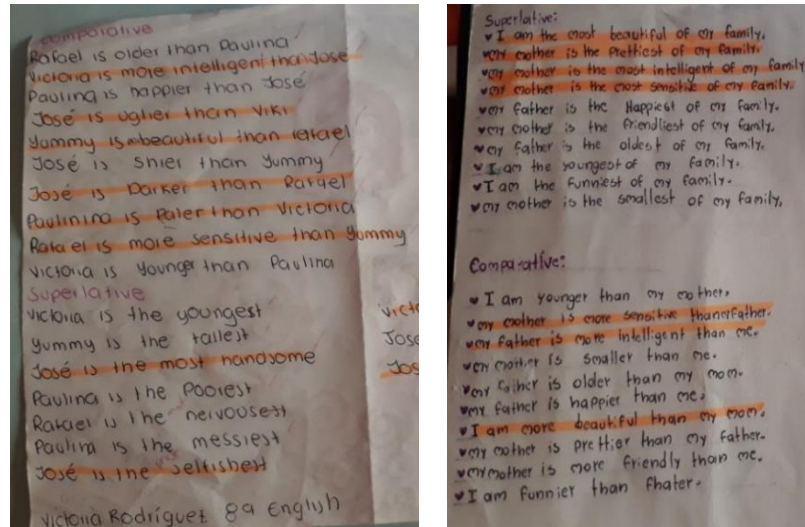 Comparative
Rafael is older than Paulina
Victoria is more intelligent than Jose
Paulina is happier than José
José is uglier than Viki
Yummy is beautiful than rafael
José is shier than Yummy
José is Darker than Rafael
Paulinina is Paler than Victoria
Rafael is more sensitive than Yummy
Victoria is Younger than Paulina
Superlative
Victoria is the youngest
Yummy is the tallest
José is the most handsome
Paulina is the Poorest
Rafael is the nervousest
Paulina is the messiest
José is the selfishest
Victoria Rodríguez 8a English
Victo
Jose
Jos
Superlative:
I am the most beautiful of my family.
my mother is the Prettiest of my family.
my mother is the most intelligent of my family
my mother is the most sensitive of my family.
my father is the Happiest of my family.
my mother is the friendliest of my family.
my father is the oldest of my family.
I am the youngest of my family.
I am the funniest of my family.
my mother is the smallest of my family.
Comparative:
I am younger than my mother.
my mother is more sensitive than father.
my father is more intelligent than me.
my mother is smaller than me.
my father is older than my mom.
my father is happier than me.
I am more beautiful than my mom.
my mother is prettier than my father.
my mother is more friendly than me.
I am funnier than fhater.